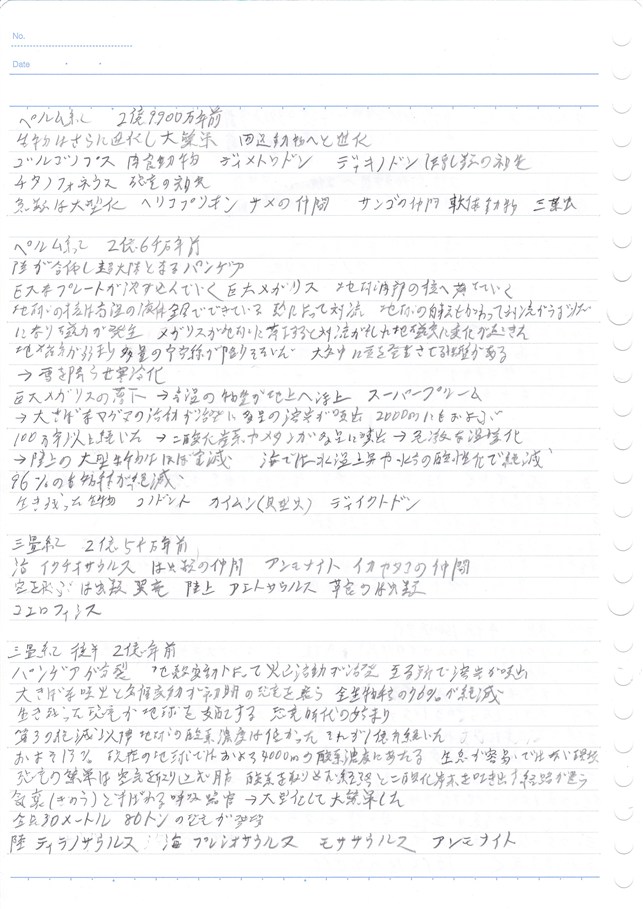 No.
Date
ペルム紀 2億9900万年前
生物はさらに進化し大繁栄 四足動物へと進化
ゴルゴノプス 肉食動物 ディメトロドン ディキノドン ほ乳類の祖先
チタノフォネウス 恐竜の祖先
魚類は大型化 ヘリコプリオン サメの仲間 サンゴの仲間 軟体動物 三葉虫
ペルム紀 2億6千万年前
陸が合体し超大陸となる パンゲア
巨大なプレートが沈み込んでいく 巨大メガリス 地球内部の核へ落ちていく
地球の核は高温の液体金属でできている 熱によって対流 地球の自転もかわって対流がうずまき
になり磁力が発生 メガリスが地球に落下すると対流がみだれ地磁気に変化が起きた
地磁気が弱まり多量の宇宙線が降りそそいだ 大気中に雲を発生させる性質がある
→ 雪を降らせ寒冷化
巨大メガリスの落下 → 高温の物質が地上へ浮上 スーパープルーム
→ 大きな赤マグマの活動が活発に 多量の溶岩が噴出 2000mにもおよぶ
100万年以上続いた → 二酸化炭素やメタンが多量に噴出 → 急激な温暖化
→ 陸上の大型生物はほぼ全滅 海では水温上昇や水の酸性化で絶滅
96%の生物種が絶滅
生き残った生物 コノドント カイムシ(貝型虫) ディイクトドン
三畳紀 2億5千万年前
海 イクチオサウルス は虫類の仲間 アンモナイト イカやタコの仲間
空を飛ぶは虫類 翼竜 陸上 アエトサウルス 草食のは虫類
コエロフィシス
三畳紀 後半 2億年前
パンゲアが分裂 地殻変動によって火山活動が活発 至る所で溶岩が噴出
大きな赤噴出と気候変動が初期の恐竜を襲う 全生物種の76%が絶滅
生き残った恐竜が地球を支配する 恐竜時代の始まり
第3の絶滅以降地球の酸素濃度は低かった それが1億年続いた
およそ13% 現在の地球ではおよそ4000mの酸素濃度にあたる 生息が容易ではない環境
恐竜の繁栄は空気を取り込む肺 酸素を取り込む経路と二酸化炭素を吐き出す経路が違う
気嚢(きのう)とよばれる呼吸器官 → 大型化して大繁栄した
全長30メートル 80トンの恐竜が登場
陸 ティラノサウルス 海 プレシオサウルス モササウルス アンモナイト